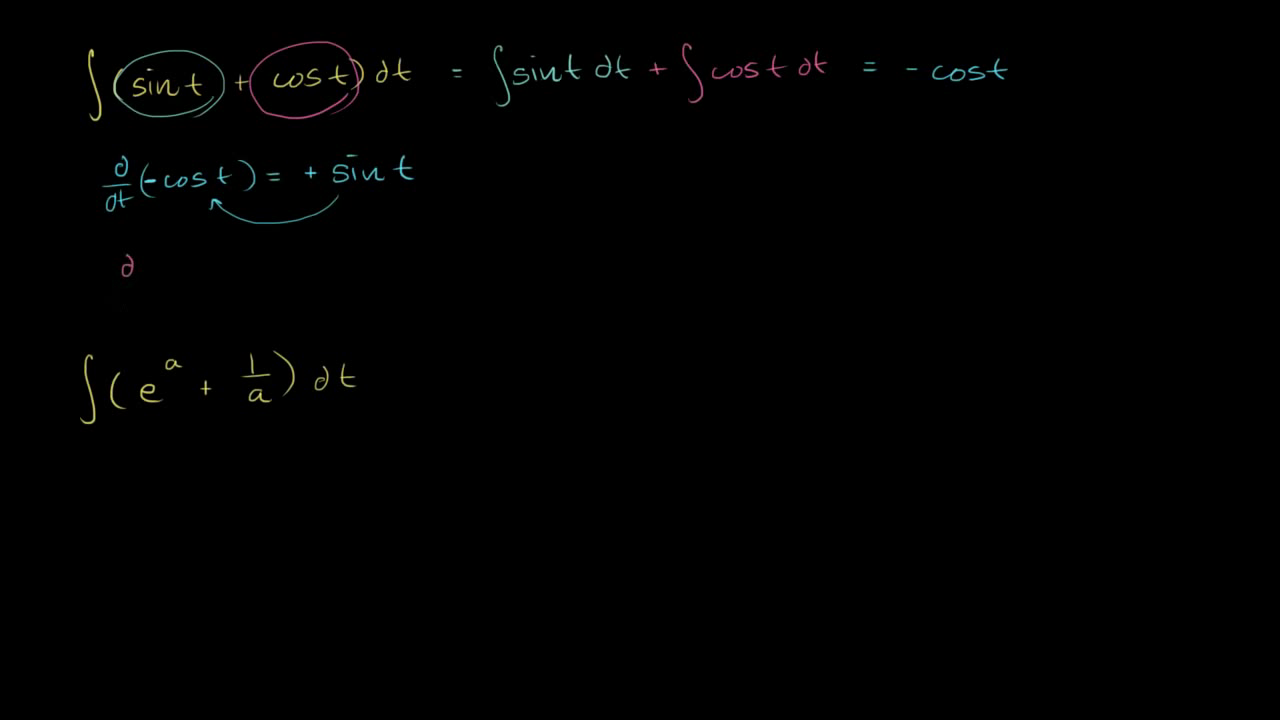 ∫(sin t + cos t) dt = ∫sin t dt + ∫cos t dt = - cos t
d/dt (-cos t) = + sin t
d
∫(e^a + 1/a) dt